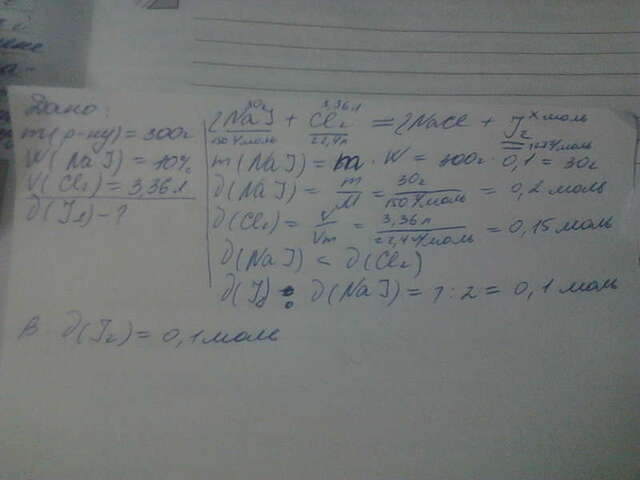 Дано:
m(р-ну) = 300г
W(NaJ) = 10%
V(Cl₂) = 3,36л
∂(J₂) - ?
30г 3,36л x моль
2NaJ + Cl₂ = 2NaCl + J₂
150 г/моль 22,4л
m(NaJ) = m · W = 300г · 0,1 = 30г
∂(NaJ) = m/M = 30г/150 г/моль = 0,2 моль
∂(Cl₂) = V/Vm = 3,36л/22,4 л/моль = 0,15 моль
∂(NaJ) < ∂(Cl₂)
∂(J₂) : ∂(NaJ) = 1 : 2 = 0,1 моль
В ∂(J₂) = 0,1 моль